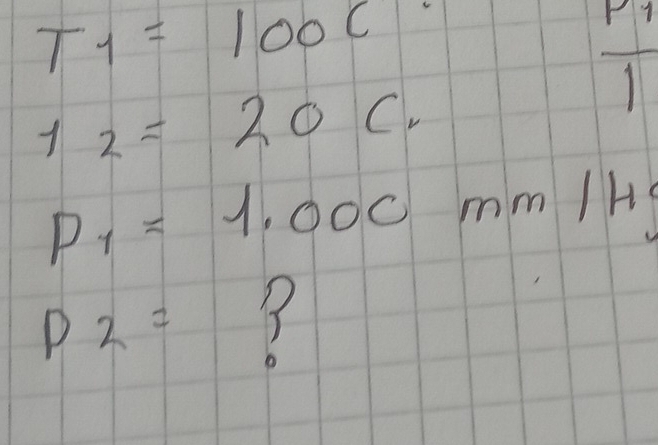 T1 = 100 C
T2 = 20 C.
P1 = 1.000 mm/Hg
P2 = ?
P1
1